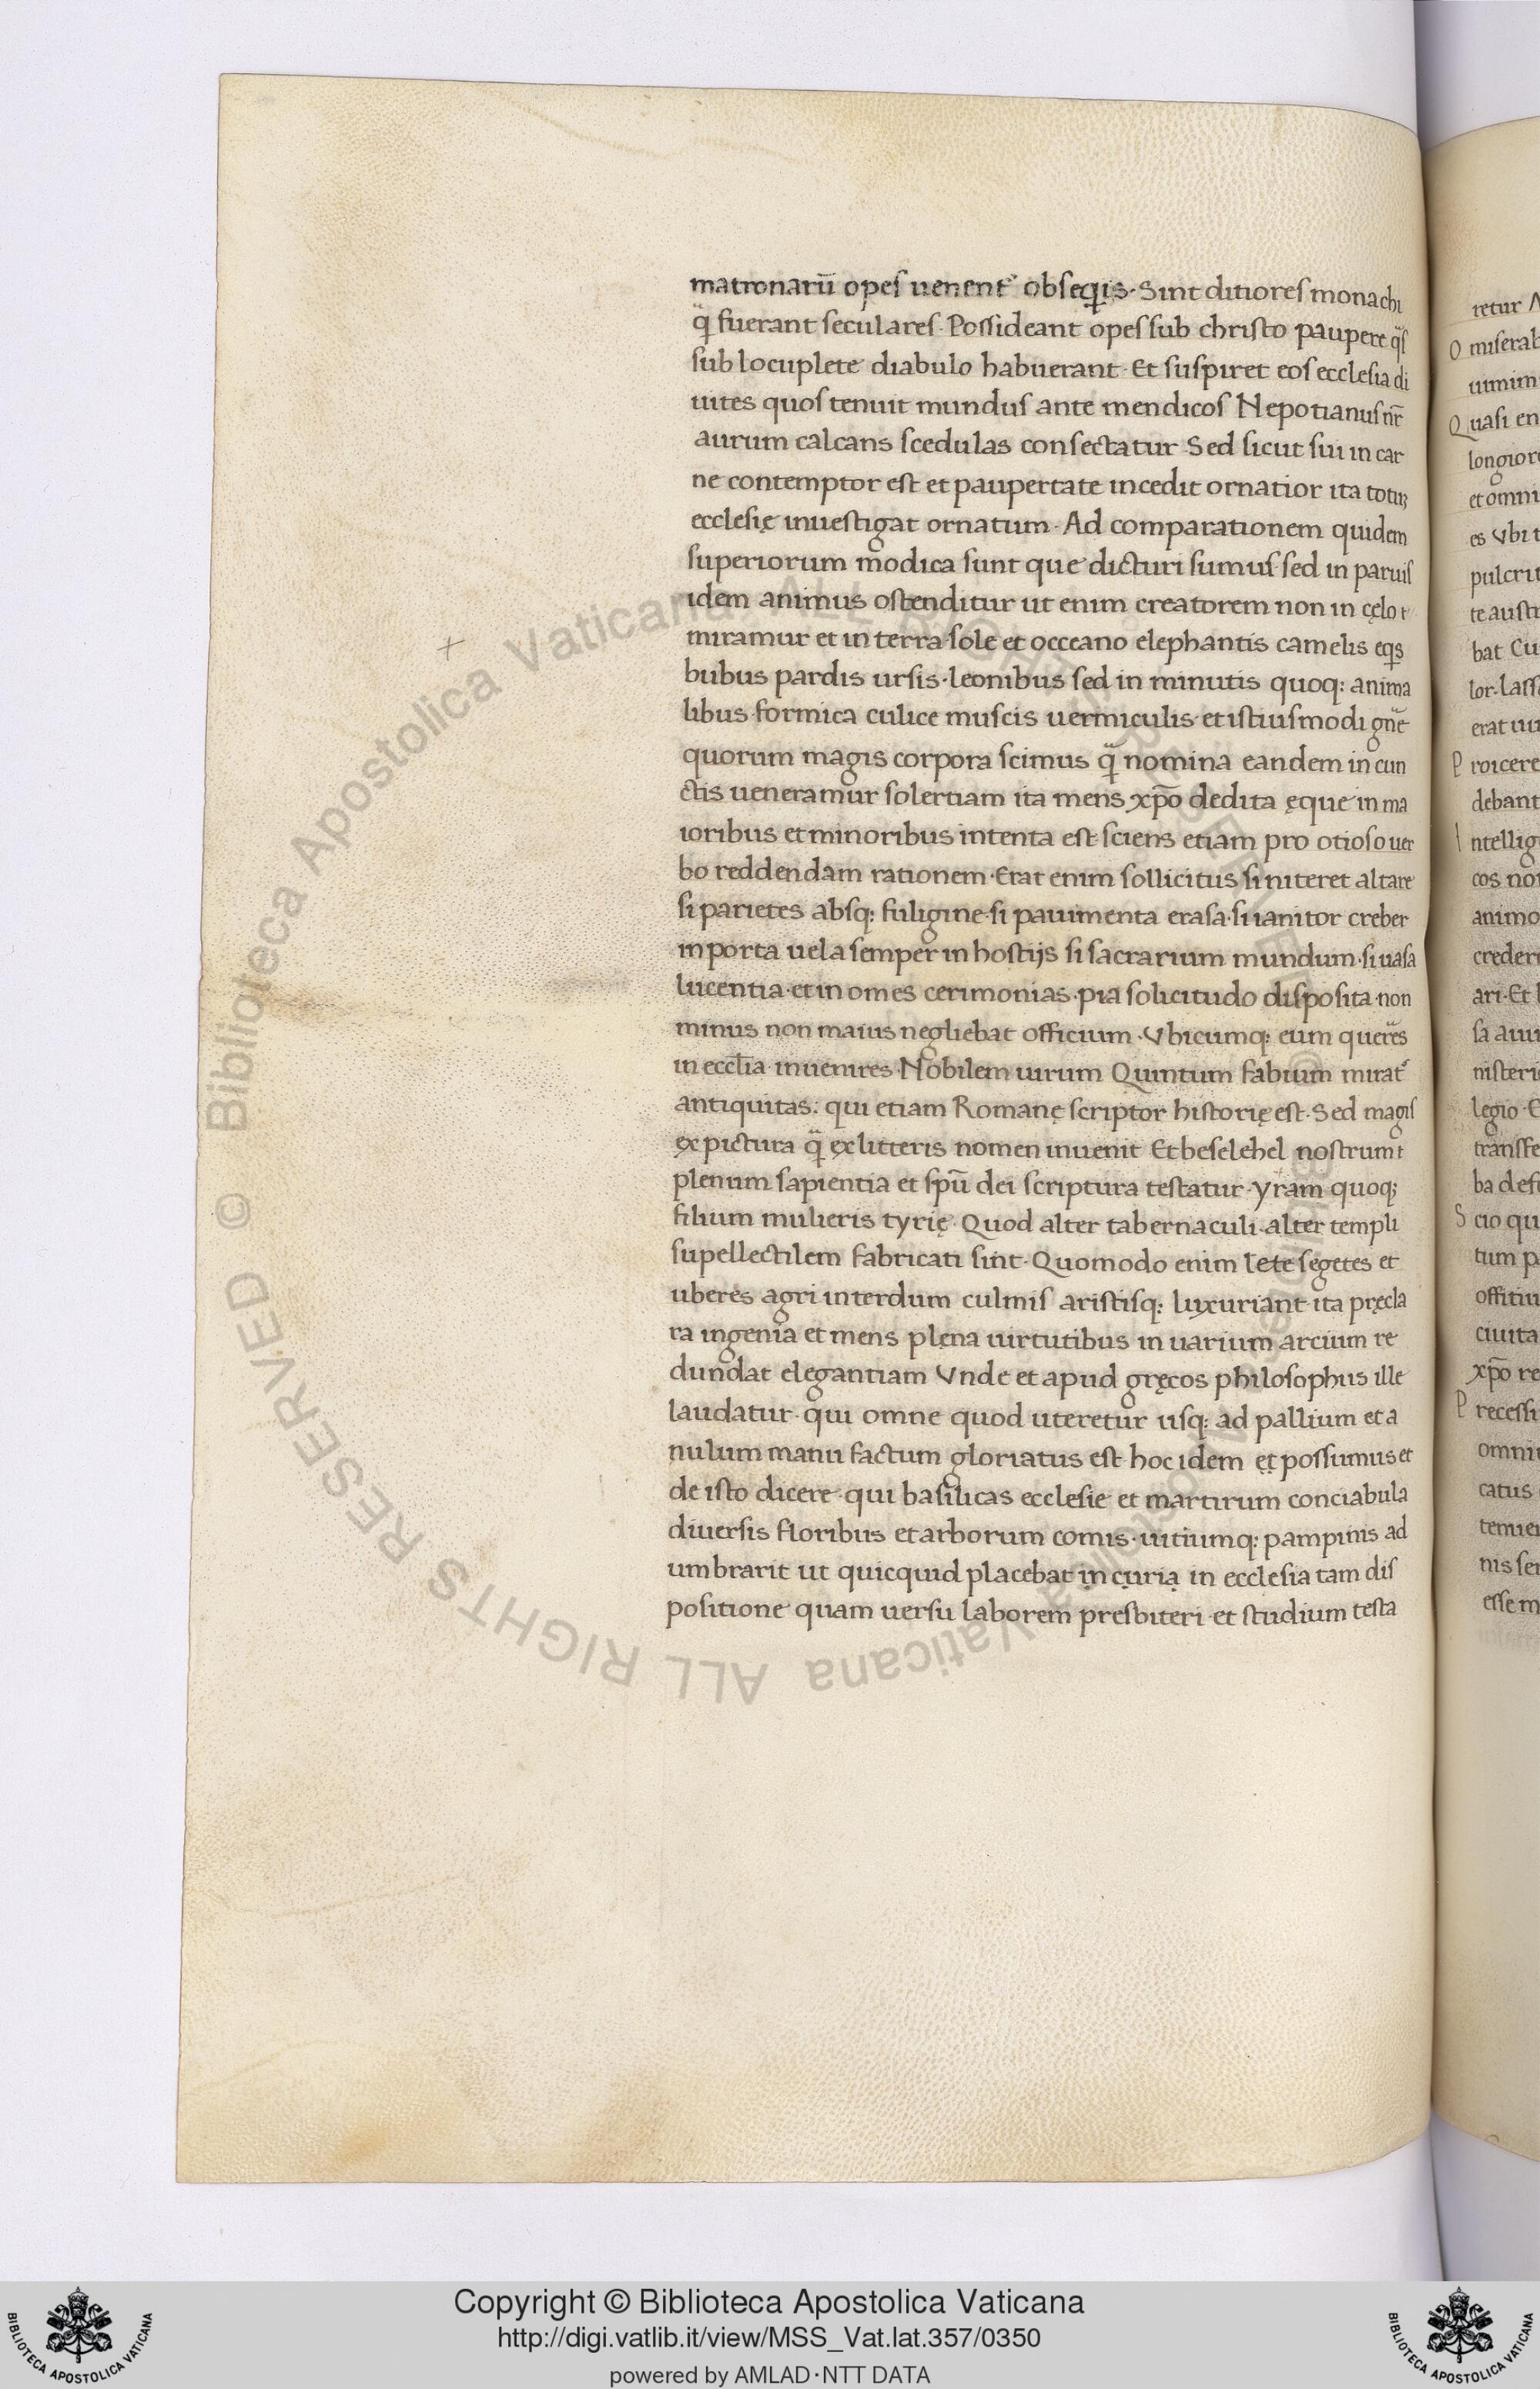 matronarū opeſ uenent᷑ obſeq̄is. Sint ditiores monachi
q̄ fuerant ſeculareſ. Poſſideant opeſ ſub chriſto paupere q̄ſ
ſub locuplete diabulo habuerant. Et ſuſpiret eoſ eccleſia di
uites quoſ tenuit munduſ ante mendicoſ Nepotianuſ nr̄
aurum calcans ſcedulas conſectatur Sed ſicut ſui in car
ne contemptor eſt et paupertate incedit ornatior ita totuȝ
eccleſię inueſtigat ornatum. Ad comparationem quidem
ſuperiorum modica ſunt que dicturi ſumuſ ſed in paruiſ
idem animus oſtenditur ut enim creatorem non in cęlo t
miramur et in terra ſole et occeano elephantis camelis eq̄s
bubus pardis urſis. leonibus ſed in minutis quoq: anima
libus formica culice muſcis uermiculis et iſtiuſmodi gn̄e
quorum magis corpora ſcimus q̄ nomina eandem in cun
ctis ueneramur ſolertiam ita mens xp̄o dedita ęque in ma
ioribus et minoribus intenta eſt ſciens etiam pro otioſo uer
bo reddendam rationem. Erat enim ſollicitus ſi niteret altare
ſi parietes abſq: fuligine. ſi pauimenta eraſa. ſi ianitor creber
in porta uela ſemper in hoſtijs ſi ſacrarium mundum. ſi uaſa
lucentia. et in omēs cerimonias. pia ſolicitudo diſpoſita. non
minus non maius negliebat officium. Vbicumq: eum querēs
in eccl̄ia inuenires. Nobilem uirum Quintum fabium mirat᷑
antiquitas: qui etiam Romanę ſcriptor hiſtorię eſt. Sed magiſ
ex pictura q̄ ex litteris nomen inuenit Et beſelehel noſtrum t
plenum ſapientia et ſpū dei ſcriptura teſtatur. yram quoq;
filium mulieris tyrię. Quod alter tabernaculi. alter templi
ſupellectilem fabricati ſint. Quomodo enim lete ſegetes et
uberes agri interdum culmiſ ariſtiſq: luxuriant ita pręcla
ra ingenia et mens plena uirtutibus in uarium arcium re
dundat elegantiam Vnde et apud gręcos philoſophus ille
laudatur. qui omne quod uteretur uſq: ad pallium et a
nulum manu factum gloriatus eſt. hoc idem et poſſumus et
de iſto dicere. qui baſilicas eccleſie et martirum conciabula
diuerſis floribus et arborum comis. uitiumq: pampinis ad
umbrarit ut quicquid placebat in curia in eccleſia tam diſ
poſitione quam uerſu laborem presbiteri et ſtudium teſta
retur
O miſerab
uimim
Q uaſi en
longiore
et omni
es Vbi t
pulcrit
te auſt
bat Cu
lor. Laſſ
erat uu
P roicere
debant
I ntellig
cos no
animo
creder
ari. Et
ſa au
niſteri
legio
tranſfe
ba def
S cio qu
tum p
offitiu
ciuita
xp̄o re
P receſſi
omni
catus
tenue
nis ſe
eſſe m
© Biblioteca Apostolica Vaticana ALL RIGHTS RESERVED
© Biblioteca Apostolica Vaticana ALL RIGHTS RESERVED
Copyright © Biblioteca Apostolica Vaticana
http://digi.vatlib.it/view/MSS_Vat.lat.357/0350
powered by AMLAD·NTT DATA
BIBLIOTECA APOSTOLICA VATICANA
BIBLIOTECA APOSTOLICA VATICANA